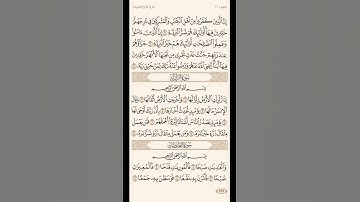 إِنَّ الَّذِينَ كَفَرُوا مِنْ أَهْلِ الْكِتَابِ وَالْمُشْرِكِينَ فِي نَارِ جَهَنَّمَ
خَالِدِينَ فِيهَا أُولَٰئِكَ هُمْ شَرُّ الْبَرِيَّةِ ٦ إِنَّ الَّذِينَ آمَنُوا
وَعَمِلُوا الصَّالِحَاتِ أُولَٰئِكَ هُمْ خَيْرُ الْبَرِيَّةِ ٧ جَزَاؤُهُمْ
عِندَ رَبِّهِمْ جَنَّاتُ عَدْنٍ تَجْرِي مِن تَحْتِهَا الْأَنْهَارُ خَالِدِينَ
فِيهَا أَبَدًا رَّضِيَ اللَّهُ عَنْهُمْ وَرَضُوا عَنْهُ ذَٰلِكَ لِمَنْ خَشِيَ رَبَّهُ ٨
سُورَةُ الزَّلْزَلَةِ
بِسْمِ اللَّهِ الرَّحْمَٰنِ الرَّحِيمِ
إِذَا زُلْزِلَتِ الْأَرْضُ زِلْزَالَهَا ١ وَأَخْرَجَتِ الْأَرْضُ أَثْقَالَهَا ٢
وَقَالَ الْإِنسَانُ مَا لَهَا ٣ يَوْمَئِذٍ تُحَدِّثُ أَخْبَارَهَا ٤ بِأَنَّ رَبَّكَ أَوْحَىٰ لَهَا
٥ يَوْمَئِذٍ يَصْدُرُ النَّاسُ أَشْتَاتًا لِّيُرَوْا أَعْمَالَهُمْ ٦ فَمَن يَعْمَلْ
مِثْقَالَ ذَرَّةٍ خَيْرًا يَرَهُ ٧ وَمَن يَعْمَلْ مِثْقَالَ ذَرَّةٍ شَرًّا يَرَهُ ٨
سُورَةُ الْعَادِيَاتِ
بِسْمِ اللَّهِ الرَّحْمَٰنِ الرَّحِيمِ
وَالْعَادِيَاتِ ضَبْحًا ١ فَالْمُورِيَاتِ قَدْحًا ٢ فَالْمُغِيرَاتِ
صُبْحًا ٣ فَأَثَرْنَ بِهِ نَقْعًا ٤ فَوَسَطْنَ بِهِ جَمْعًا ٥